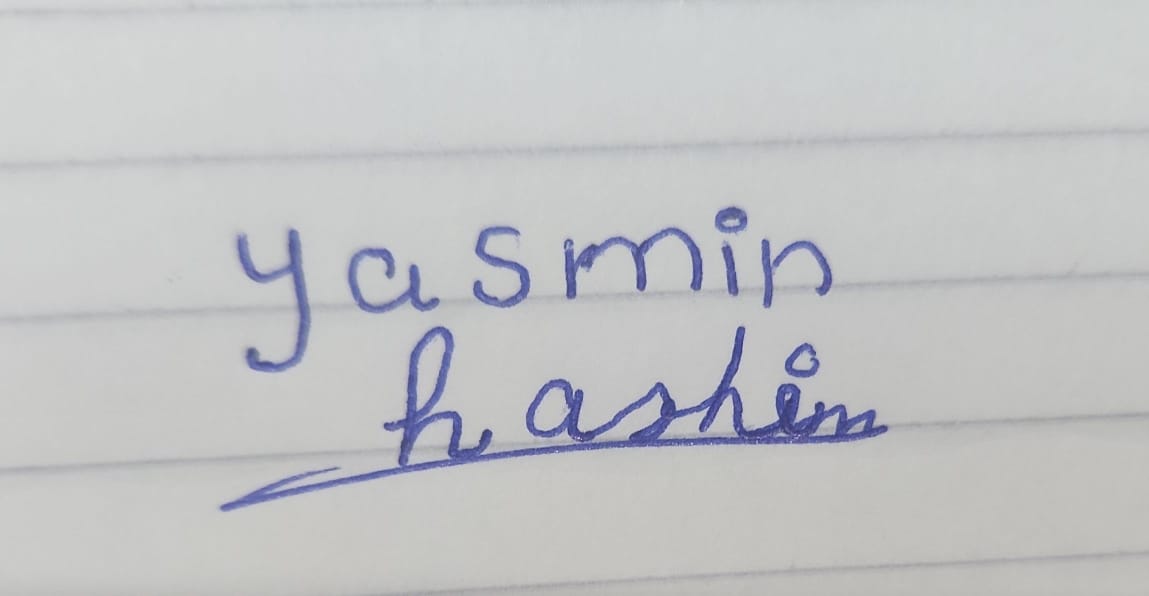 yasmin
hashim